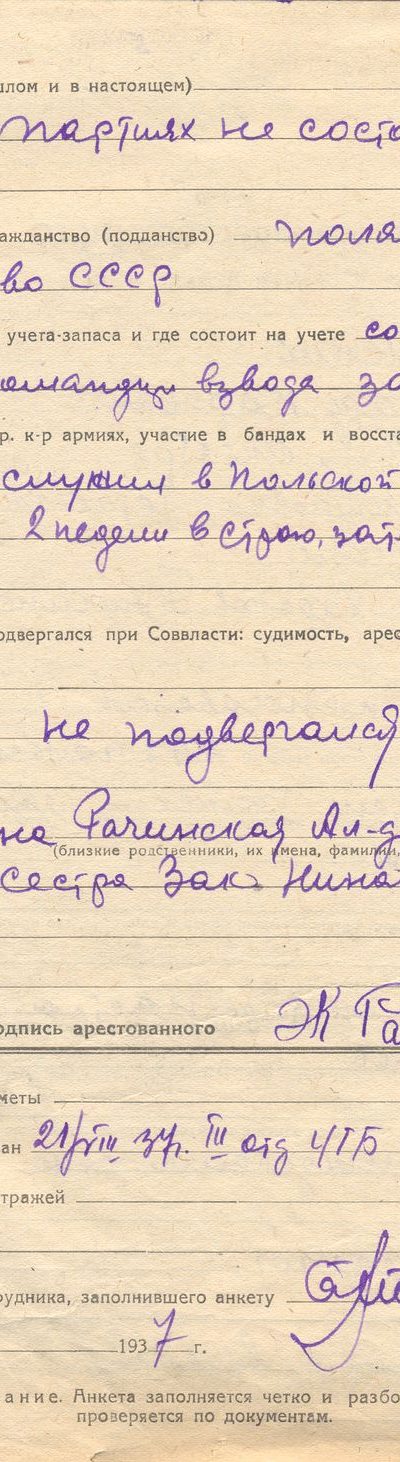 шлом и в настоящем)
партиях не состо
ажданство (подданство) поля
во СССР
учета-запаса и где состоит на учете со
командир взвода за
р. к-р армиях, участие в бандах и восста
служил в Польской
2 недели в строю, зат
одвергался при Соввласти: судимость, арес
не подвергался
на Рачинская Ал-д
(близкие родственники, их имена, фамилии,
сестра Зак Нина
одпись арестованного ЭК Га
меты
ан 21/VIII 37г. III отд УГБ
тражей
рудника, заполнившего анкету
1937 г.
ание. Анкета заполняется четко и разбо
проверяется по документам.